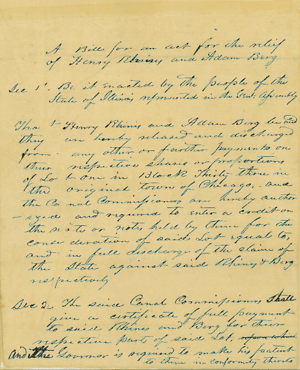 A Bill for an act for the relief
of Henry Rhines and Adam Berg
Sec 1st. Be it enacted by the people of the
State of Illinois represented in the Genl Assembly
That Henry Rhines and Adam Berg be and
they are hereby released and discharged
from any other or further payments on
their respective shares or proportions
of Lot one in Block Thirty three in
the original town of Chicago, and
the Canal Commissioners are hereby author
ized and required to enter a credit on
the note or notes held by them for the
consideration of said Lot equal to,
and in full discharge of the claim of
the State against said Rhines & Berg
respectively
Sec 2. The said Canal Commissioners shall
give a certificate of full payment
to said Rhines and Berg for their
respective parts of said Lot,
And the Governor is required to make his patent
to them in conformity thereto